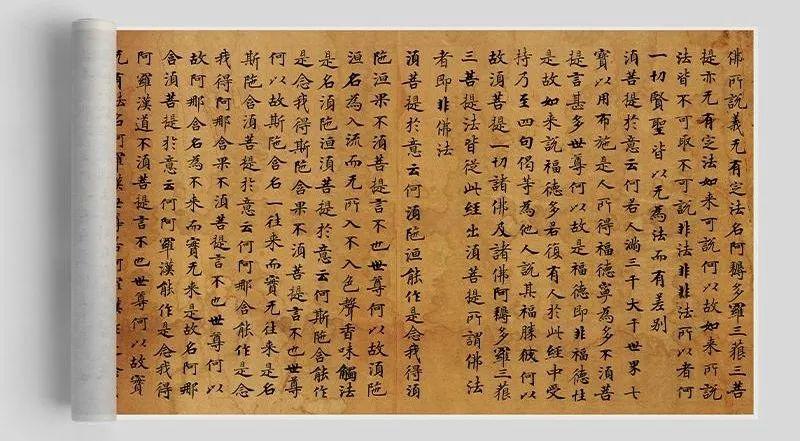 佛所說義无有定法名阿耨多羅三藐三菩
提亦无有定法如来可說何以故如来所說
法皆不可取不可說非法非非法所以者何
一切賢聖皆以无為法而有差別
湏菩提於意云何若人滿三千大千世界七
寶以用布施是人所得福德寧為多不湏菩
提言甚多世尊何以故是福德即非福德性
是故如来說福德多若復有人於此經中受
持乃至四句偈等為他人說其福勝彼何以
故湏菩提一切諸佛及諸佛阿耨多羅三藐
三菩提法皆從此經出湏菩提所謂佛法
者即非佛法
湏菩提於意云何湏陁洹能作是念我得湏
陁洹果不湏菩提言不也世尊何以故湏陁
洹名為入流而无所入不入色聲香味觸法
是名湏陁洹湏菩提於意云何斯陁含能作
是念我得斯陁含果不湏菩提言不也世尊
何以故斯陁含名一往来而實无往来是名
斯陁含湏菩提於意云何阿那含能作是念
我得阿那含果不湏菩提言不也世尊何以
故阿那含名為不来而實无来是故名阿那
含湏菩提於意云何阿羅漢能作是念我得
阿羅漢道不湏菩提言不也世尊何以故實